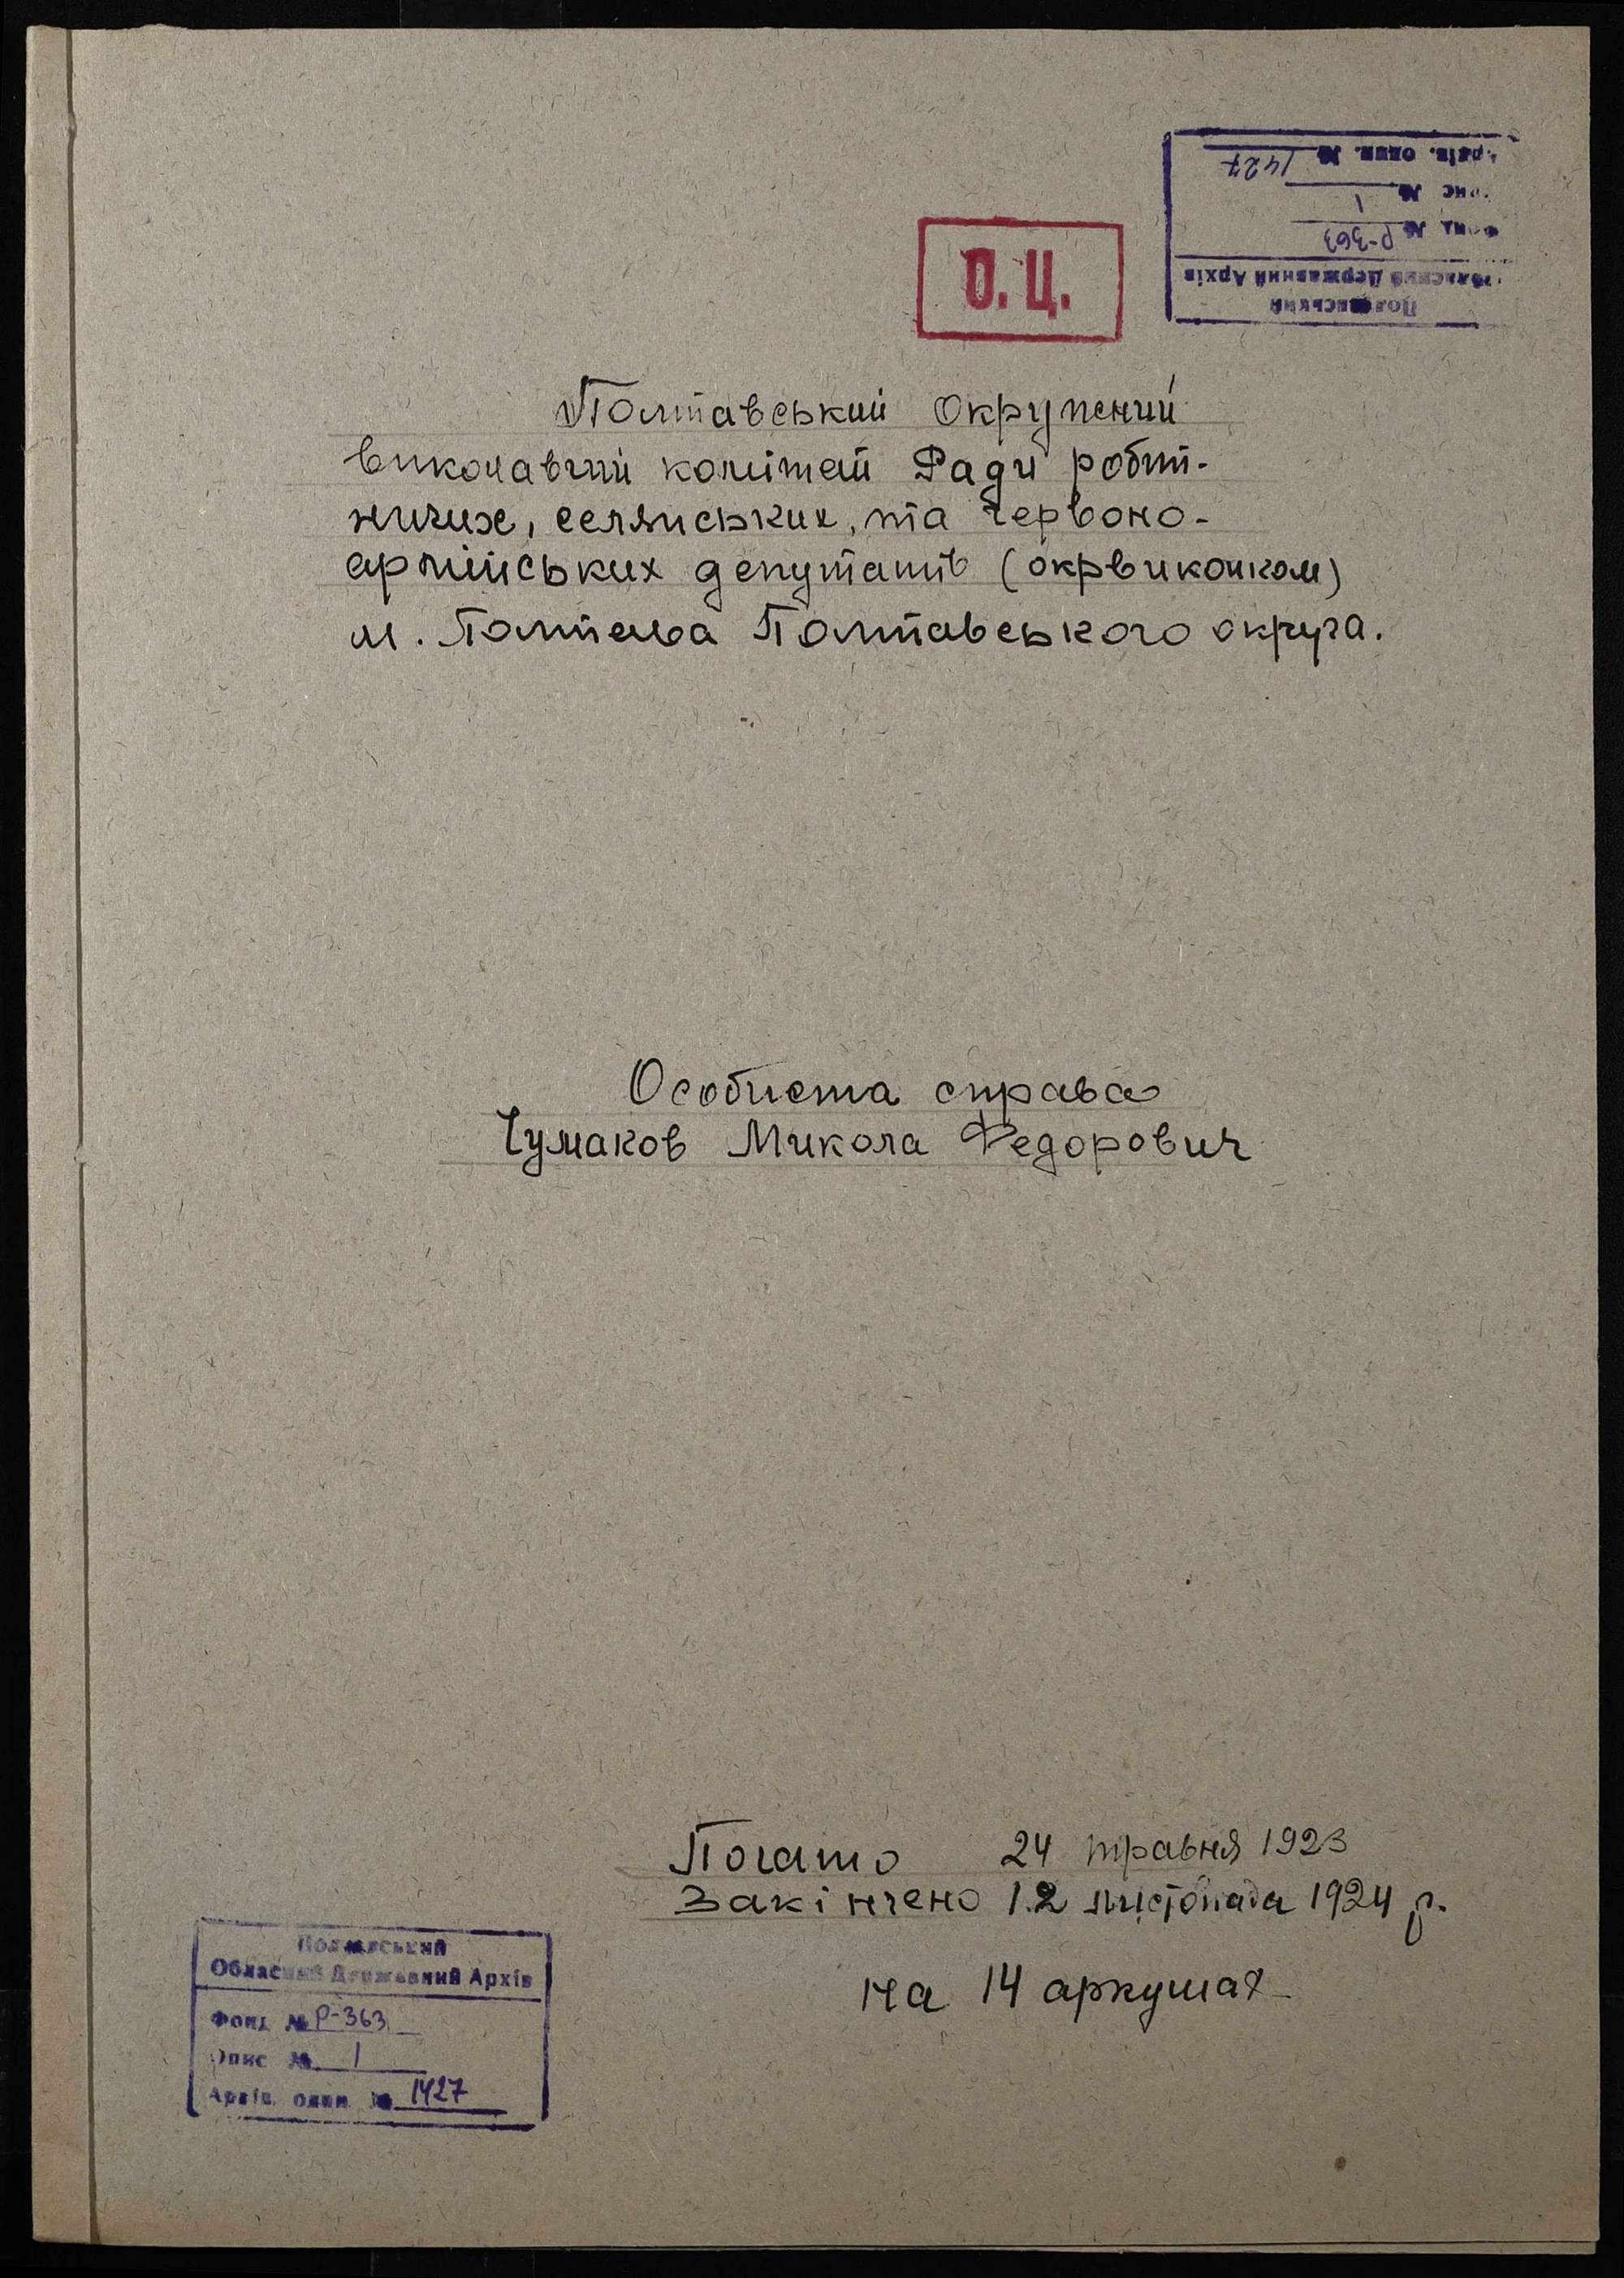 Полтавський
Обласний Державний Архів
Фонд № Р-363
Опис № 1
Архів. один. № 1427
О.Ц.
Полтавський Окружний
виконавчий комітет Ради робіт-
ничих, селянських, та червоно-
армійських депутатів (окрвиконком)
м. Полтава Полтавського округа.
Особиста справа
Чумаков Микола Федорович
Почато 24 травня 1923
Закінчено 12 листопада 1924 р.
на 14 аркушах
Полтавський
Обласний Державний Архів
Фонд № Р-363
Опис № 1
Архів. один. № 1427